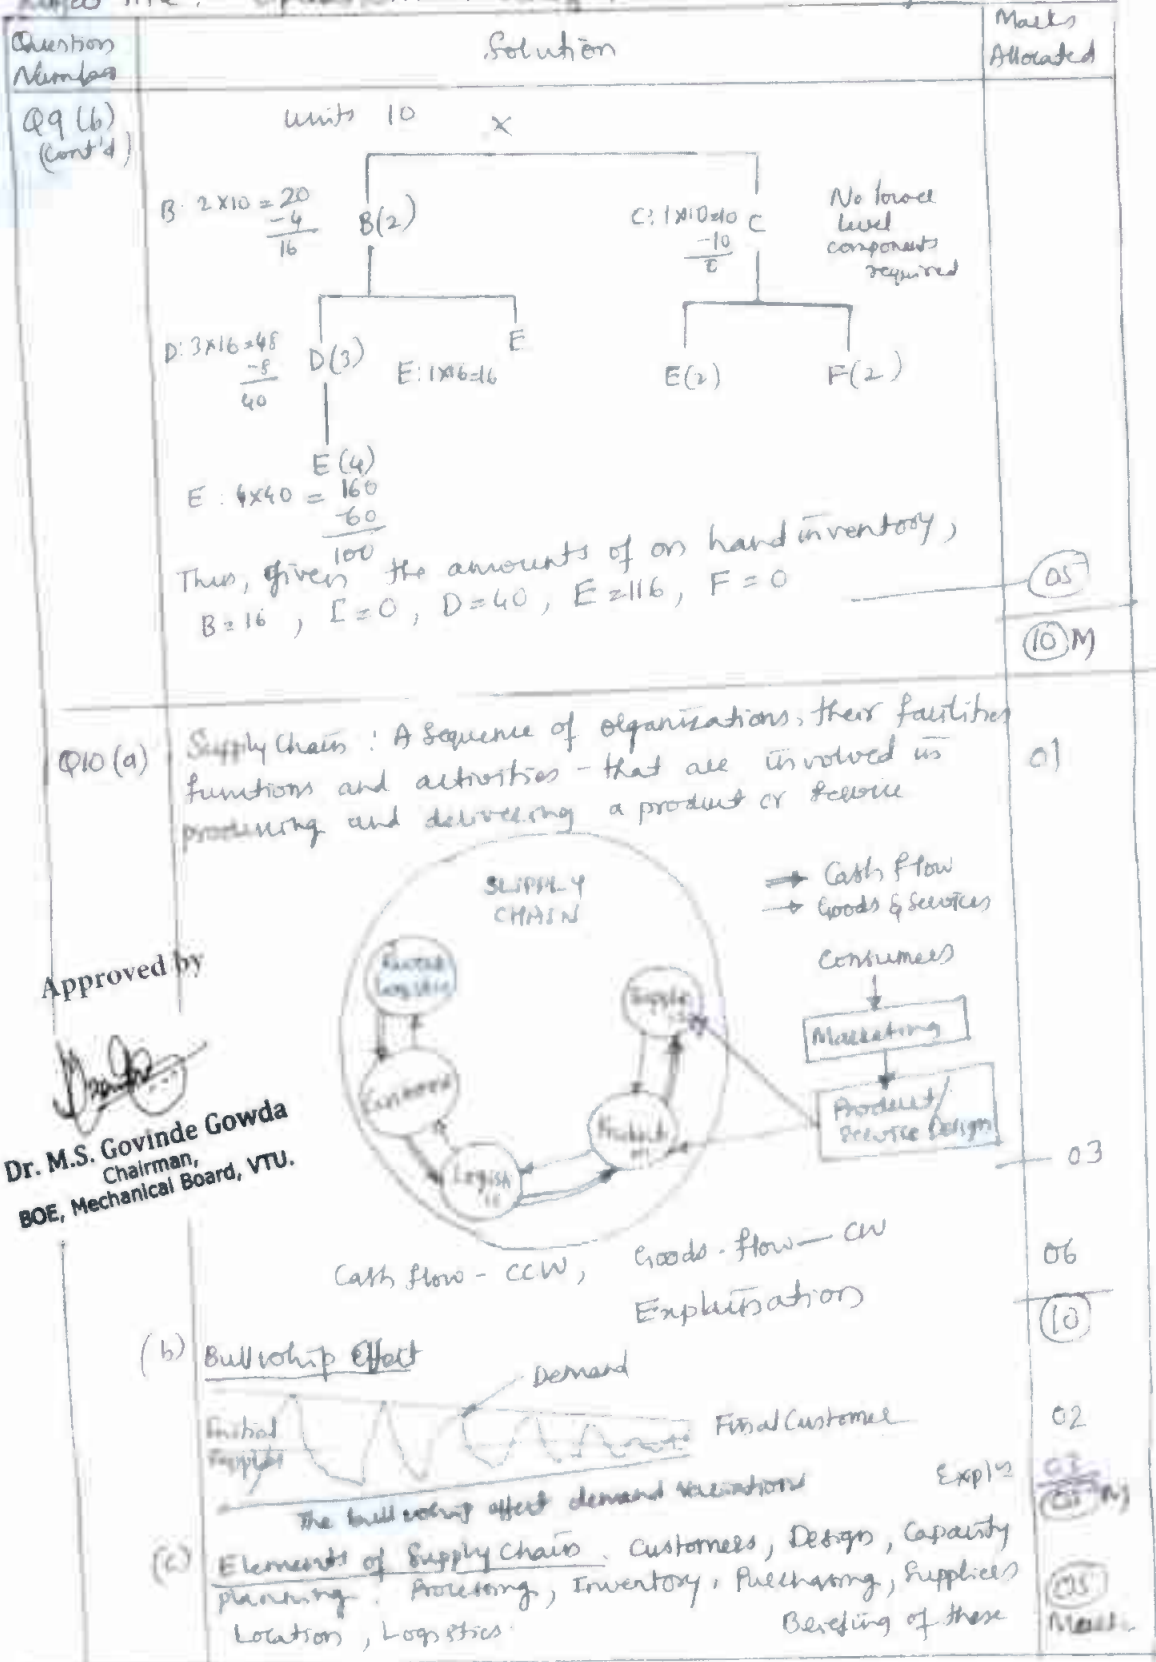 Question Number
Solution
Marks Allocated
Q9 (b)
(Cont'd)
Units 10 X
B: 2×10 = 20
-4
16
B(2)
C: 1×10=10
-10
0
C
No lower
level
components
required
D: 3×16=48
-8
40
D(3)
E: 1×16=16
E
E(2)
F(2)
E(4)
E: 4×40 = 160
-60
100
Thus, given the amounts of on hand inventory,
B=16, C=0, D=40, E=116, F=0
05
10 M
Q10 (a)
Supply Chain: A Sequence of organizations, their facilities
functions and activities - that are involved in
producing and delivering a product or service
01
SUPPLY
CHAIN
Cash flow
Goods & Services
Consumers
Marketing
Product/
Service Design
Customer
Logist
ic
03
Approved by
Dr. M.S. Govinde Gowda
Chairman,
BOE, Mechanical Board, VTU.
Cash flow - CCW, Goods - flow - CW
06
Explanation
10
(b) Bullwhip Effect
Demand
Initial
Supplier
Final Customer
02
The bull whip effect demand variations
Expln
(c) Elements of Supply Chain. Customers, Design, Capacity
planning. Processing, Inventory, Purchasing, Suppliers
Location, Logistics. Briefing of these
05